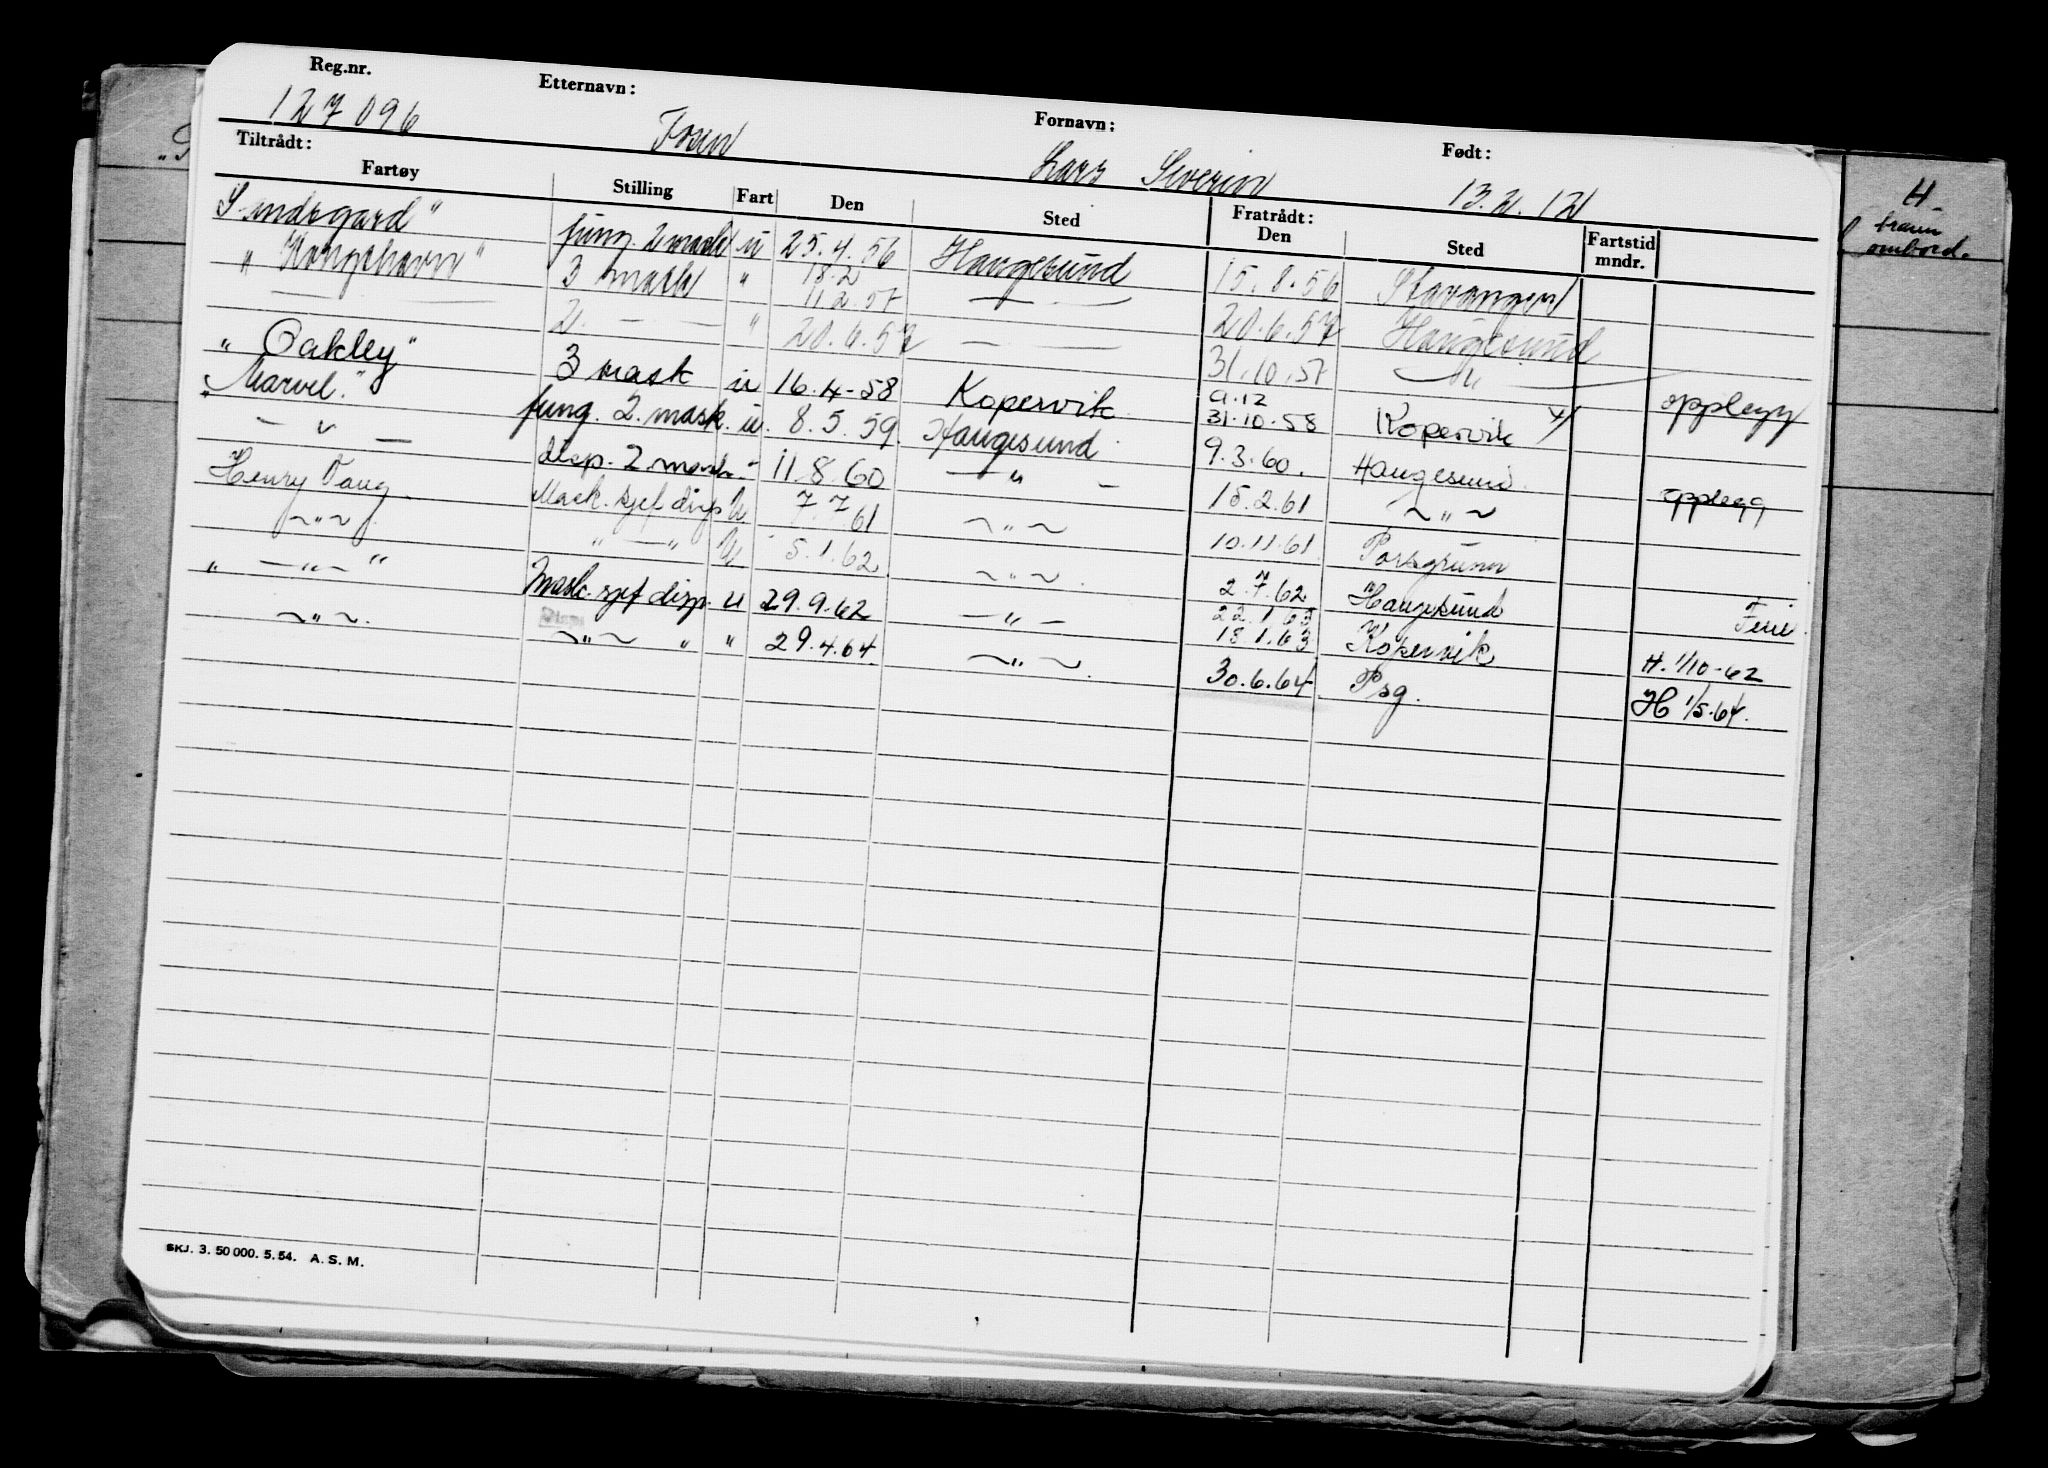 Reg.nr. Etternavn: Fornavn: Født:
127096 Fosen Lars Severin 13.2.12
Tiltrådt: Fratrådt:
Fartøy Stilling Fart Den Sted Den Sted Fartstid mndr.
S-ndsgard" fung. 2 mask u 25.4.56 Haugesund 15.8.56 Stavanger
"Kongshavn" 3 mask " 18.2 11.2.57 — — 20.6.57 Haugesund
— — 2. — — " 20.6.57 — — 31.10.57 — " — opplegg
"Oakley" 3 mask u 16.4-58 Kopervik 9.12 31.10-58 Kopervik
"Marvel." fung. 2. mask. u. 8.5.59. Haugesund 9.3.60. Haugesund. opplegg
— " — disp. 2 mask. " 11.8.60 — " — 15.2.61 ~ " ~
Henry Tang. Mask. sjef disp U 7.7.61 ~ " ~ 10.11.61 Porsgrunn
~ " ~ " — " U 5.1.62 ~ " ~. 2.7.62 Haugesund Ferie.
" — " — " Mask. sjef disp. u 29.9.62 — " — 22.1.63 18.1.63 Kopervik H. 1/10-62
~ " ~. ~ " ~ " " 29.4.64. ~ " ~. 30.6.64 Psg. H 1/5.64.
SKJ. 3. 50 000. 5. 54. A. S. M.
H.
ombord.